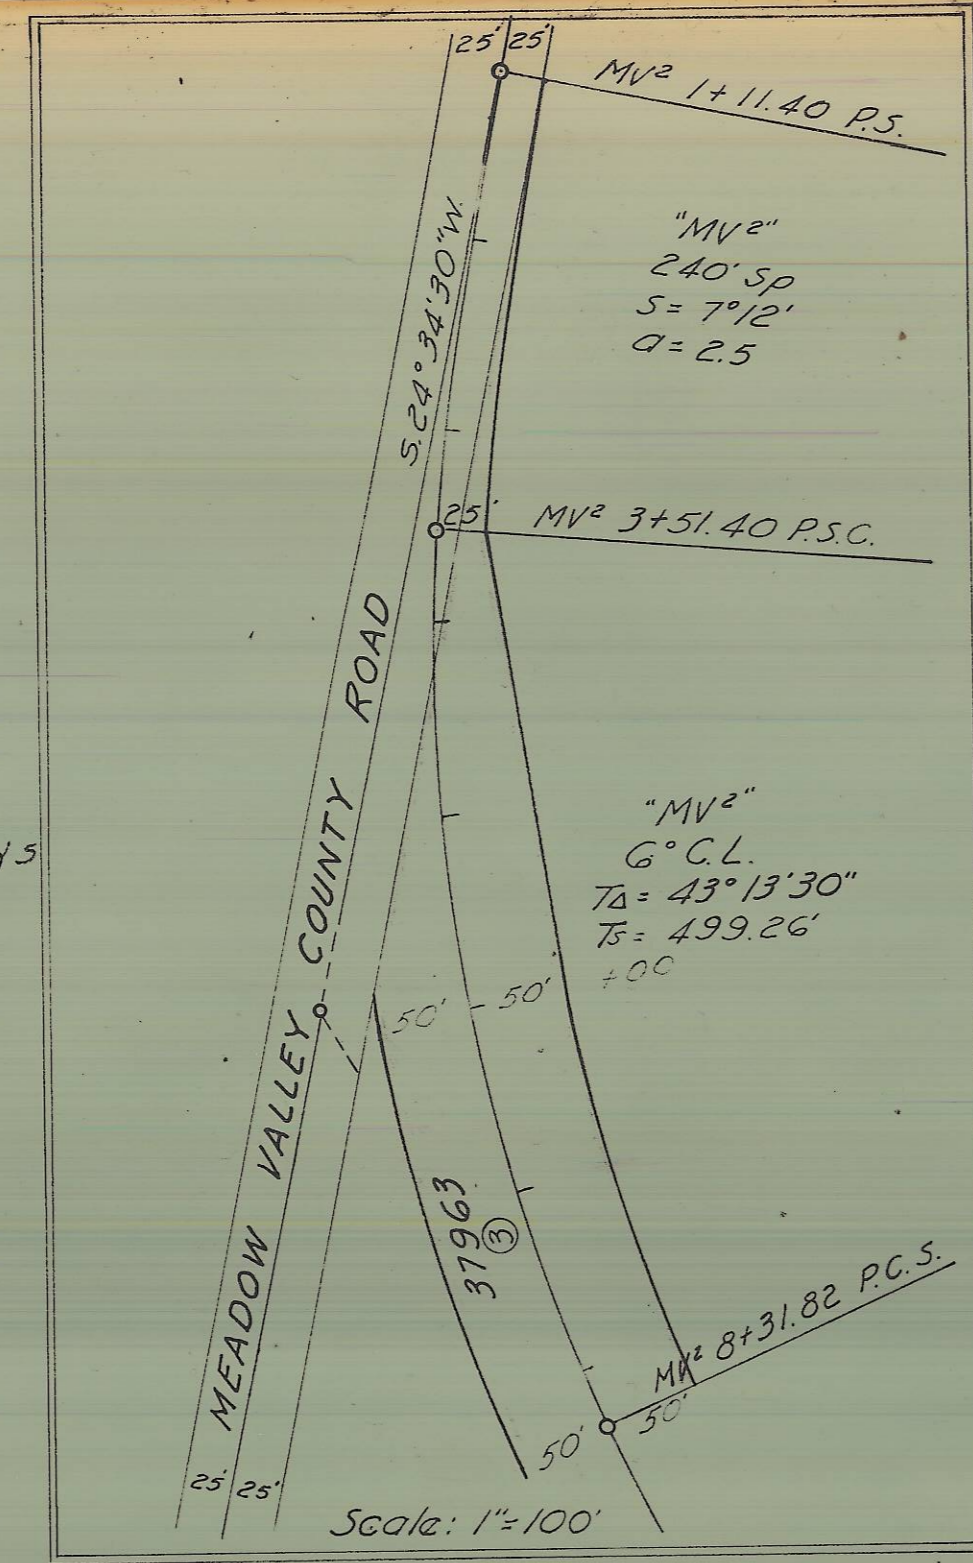 25' 25'
MV² 1+11.40 P.S.
"MV²"
240' Sp
S = 7°12'
a = 2.5
S.24°34'30"W.
25' MV² 3+51.40 P.S.C.
MEADOW VALLEY COUNTY ROAD
"MV²"
6° C.L.
TΔ = 43°13'30"
Ts = 499.26'
+00
50' 50'
37963
③
MV² 8+31.82 P.C.S.
50' 50'
25' 25'
Scale: 1"=100'